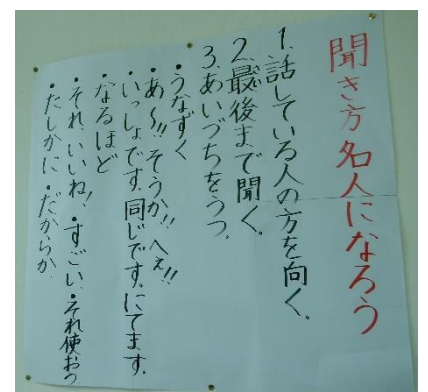 聞き方名人になろう
1.話している人の方を向く。
2.最後まで聞く。
3.あいづちをうつ。
・うなずく
・あ〜!!そうか!!へぇ!!
・いっしょです。同じです。にてます。
なるほど
・それ、いいね!・すごい・それ使おう
・たしかに・だからか